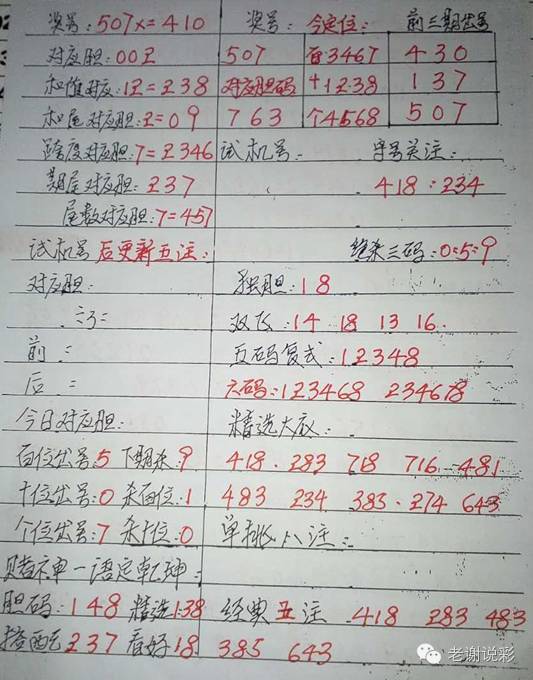 奖号:507X=410 奖号: 今定位: 前三期出号
对应胆:00Z 507 百3467 430
和值对应:1Z=Z38 对应胆码 十1238 137
和尾对应胆:Z=09 763 个4568 507
跨度对应胆:7=2346 试机号 字号关注:
期尾对应胆:237 418:234
尾数对应胆:7=457
试机号后更新五注: 绝杀三码:0:5:9
对应胆: 独胆:18
双飞:14 18 13 16
前 : 五码复式:12348
后 : 六码:123468 234678
今日对应胆: 精选大底:
百位出号:5 下期杀:9 418. 283 718 716 481
十位出号:0 杀百位:1 483 234 383. 274 643
个位出号:7 杀十位:0 单挑八注:
赌神一语定乾坤:
胆码:148 精选138 经典五注 418 283 483
搭配237 看好18 385 643
老谢说彩